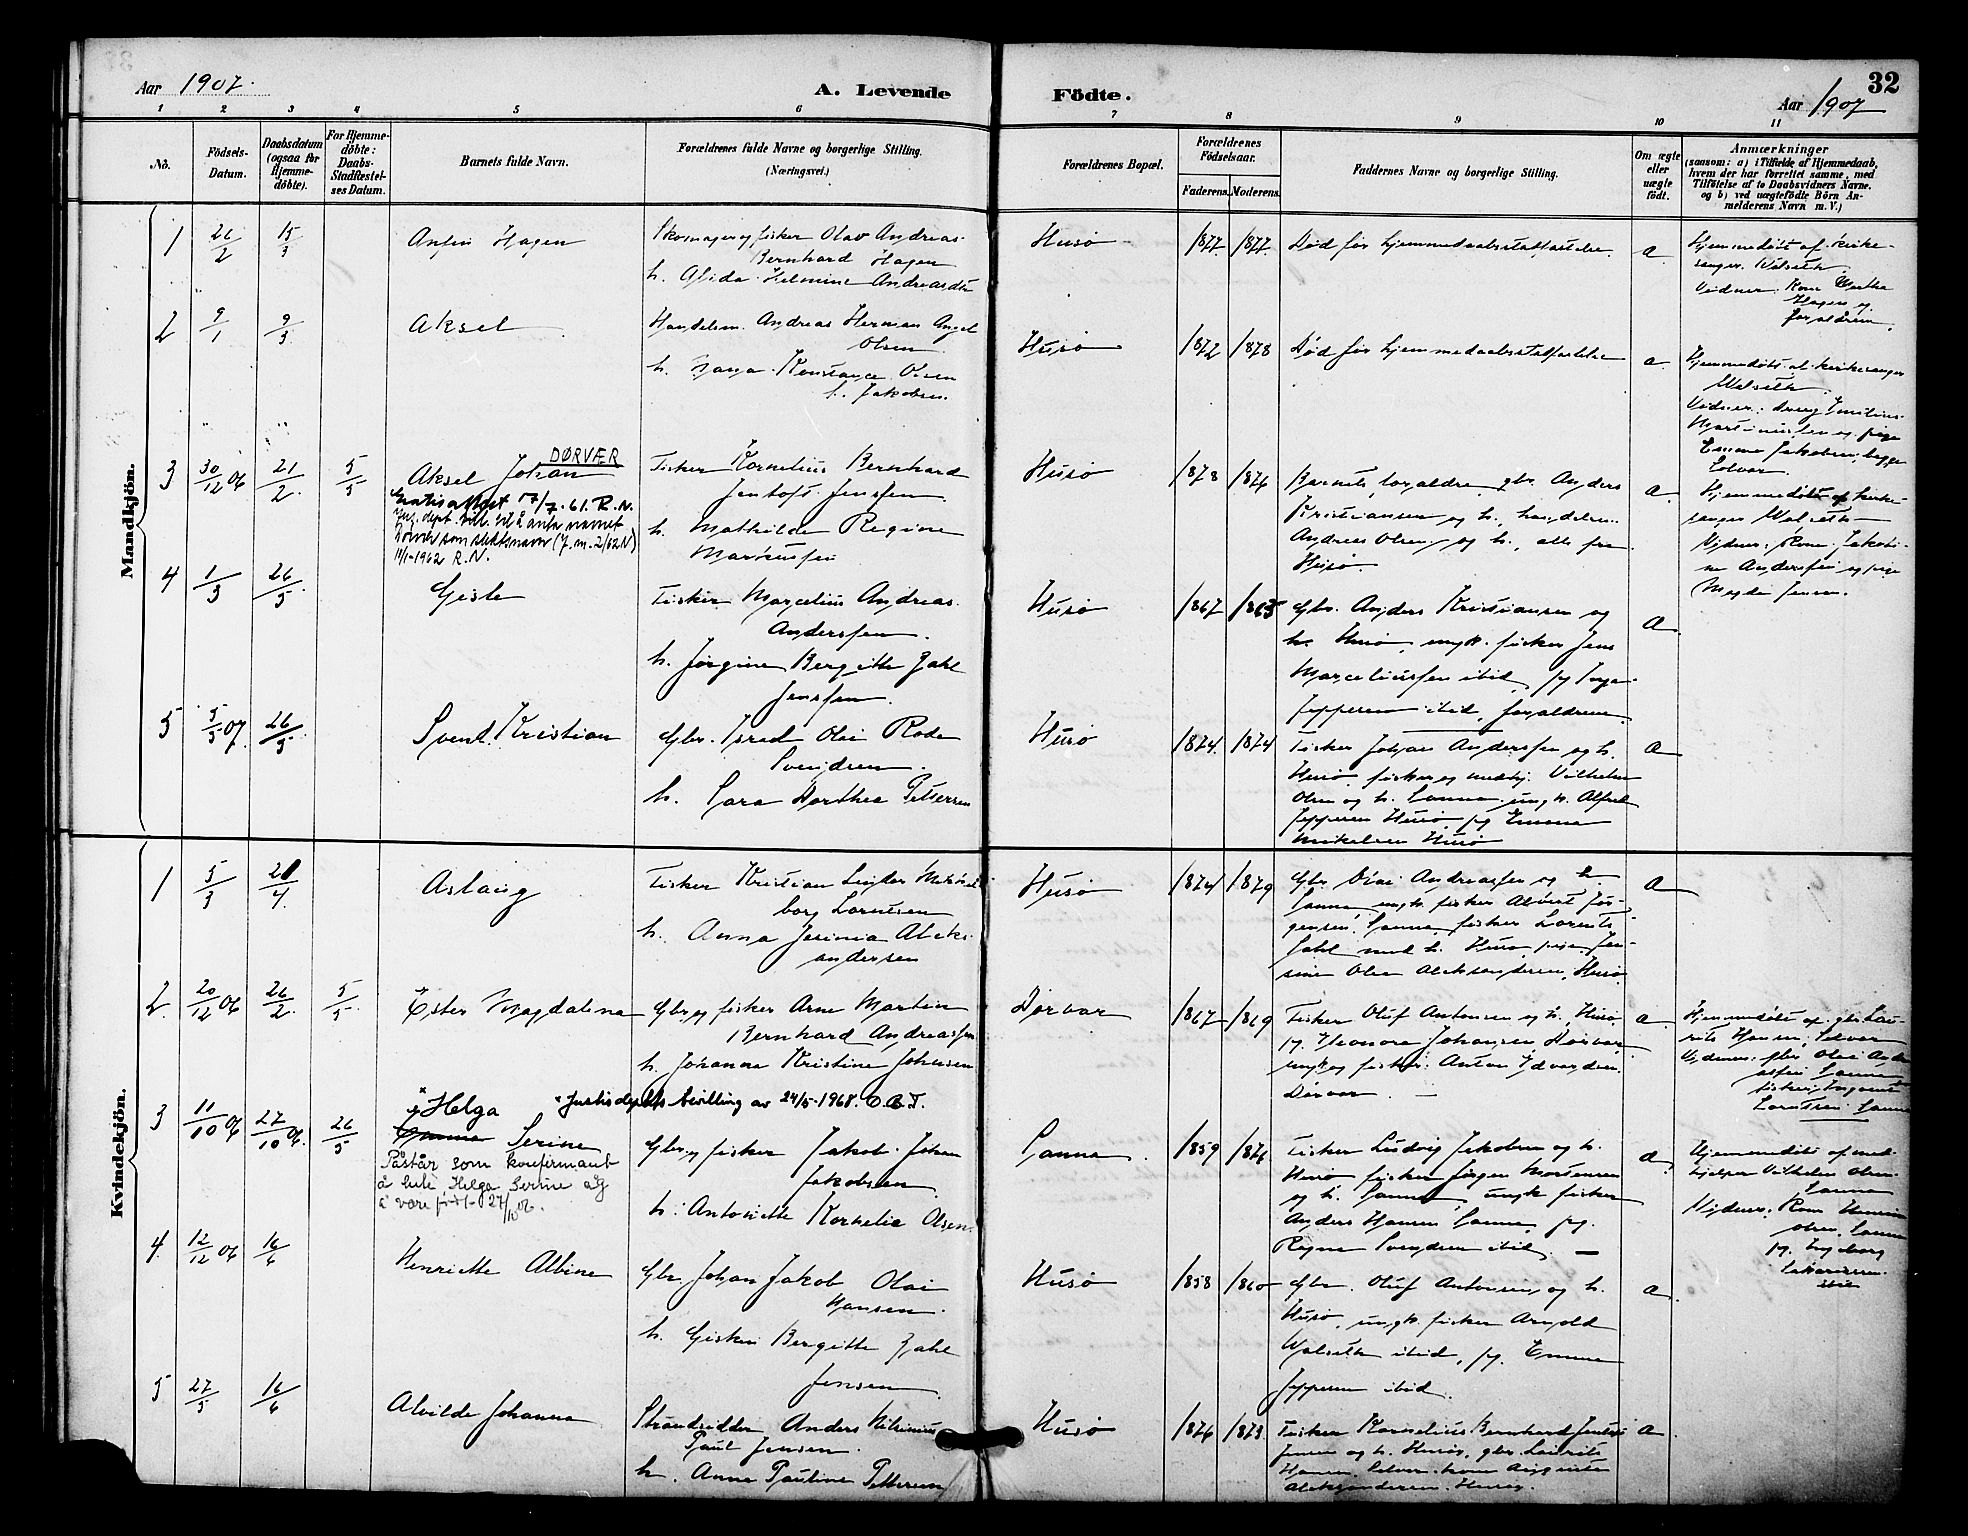 Aar 1907.
A. Levende Födte.
Aar 1907
32
1 2 3 4 5 6 7 8 9 10 11
Nö.
Födsels-Datum.
Daabsdatum (ogsaa for Hjemme-döbte).
For Hjemme-döbte: Daabs-Stadfæstel-ses Datum.
Barnets fulde Navn.
Forældrenes fulde Navne og borgerlige Stilling.
(Næringsvei.)
Forældrenes Bopæl.
Forældrenes Födselsaar.
Faderens. Moderens.
Faddernes Navne og borgerlige Stilling.
Om ægte eller uægte födt.
Anmærkninger
(saasom: a) i Tilfælde af Hjemmedaab,
hvem der har forrettet samme, med
Tilföielse af to Daabsvidners Navne.
og b) ved uægtefödte Börn An-
melderens Navn m. V.)
Mandkjön.
1 26/2 15/3 Hagen
Skomager og fisker Olav Andreas
Bernhard Hagen
h. Alida Helmine
Husö 1877. 1877. Död för hjemmedaabsstadfæstelse. a
Hjemmedöbt af kirke-
sanger Walseth
Vidner: Kone
Hagen og
forældrene.
2 9/1 9/3 Aksel
Handelsm. Andreas Herman Angel
Olsen
h. Konstance Olsen
f. Jakobsen.
Husö 1872 1878 Död för hjemmedaabsstadfæstelse a.
Hjemmedöbt af kirkesanger
Walseth.
Vidner:
og pige
Emma Jakobsen, begge
3 30/12 06 21/2 5/5 Aksel Johan DØRVÆR
Gratisattest 17/7-61. R.N.
som slektsnavn (J.m. 2/62 N)
11/1-1962 R.N.
Fisker Kornelius Bernhard
Jentoft Jenssen.
h. Mathilde Regine
Markussen
Husö 1878 1876 Barnets forældre, gbr. Anders
Kristiansen og h., handelsm.
Andreas Olsen og h., alle fra
Husö.
a.
Hjemmedöbt af kirke-
sanger Walseth
Vidner: Kone Jakobi-
ne Anderssen og pige
Magda Jensen.
4 1/3 26/5 Gisle
Fisker Marcelius Andreas
Anderssen.
h. Jørgine Bergitte Zahl
Jenssen.
Husö 1867 1865 Gbr. Anders Kristiansen og
h. Husö, ungk. fisker Jens
Marceliussen ibid, pg Inga
Jeppesen ibid, forældrene.
a.
5 5/5 07. 26/5 Svend Kristian
Gbr. Olai Rode
Svendsen.
h. Sara Dorthea Pettersen
Husö 1874. 1874 Fisker Johan Anderssen og h.
Husö, fisker og Vilhelm
Olsen og h. Sanna, ungk. Alfred
Jeppesen Husö, pg Emma
Mikelsen Husö
a
Kvindekjön.
1 5/3 4. Aslaug
Fisker Kristian
Lorntsen
h. Anna Aleks-
andersen
Husö 1874 1879 Gbr Olai Andreassen og h.
Sanna, ungk. fisker
Sanna, fisker Lorents
Zahl med h. Husö, pige Jen-
sine Olea Aleksandersen, Husö.
a
2. 20/12 06 26/2 5/5 Ester Magdalena
Gbr. og fisker Arne Martin
Bernhard Andreassen
h. Johanna Kristine Johansen
Dørvær 1867 1869 Fisker Oluf Antonsen og h. Husö,
pg. Eleonora Johansen Dørvær,
ungk. og fisker Anton Edvardsen
Dörvær.
a.
Hjemmedöbt af gbr. Lau-
rits Hansen,
Vidner: gbr. Olai Andre-
assen Sanna
fisker
Lorntsen Sanna
3 11/10 06 27/10 06. 26/5 Helga
Emma Serine
Justisdep.ts bevilling av 24/5-1968.
Påstår som konfirmant
å hete Helga Serine og
å være født 27/10 06.
Gbr. og fisker Jakob Johan
Jakobsen.
h. Antonette Kornelia Olsen.
Sanna. 1859 1876 Fisker Ludvig Jakobsen og h.
Husö, fisker Jörgen Mortensen
og h. Sanna, ungk. fisker
Anders Hansen Sanna, pg.
Ragna Svendsen ibid.
a.
Hjemmedöbt af med-
hjelper Vilhelm Olsen
Sanna
Vidner: Kone
Olsen, Sanna
pg. Ingeborg
ibid
4. 12/12 06 16/6 Henriette Albine
Gbr. Johan Jakob Olai
Hansen.
h. Gisken Bergitte Zahl
Jensen
Husö 1858 1860 Gbr. Oluf Antonsen og h.
Husö, ungk. fisker Arnold
Walseth ibid, pg. Emma
Jeppesen ibid.
a.
5 27/5 16/6 Alvilde Johanna
Strandsidder Anders
Paul Jensen.
h. Anna Pauline Pettersen
Husö 1876 1873. Fisker Kornelius Bernhard Jentoft
Jensen og h. Husö, gbr. Laurits
Hansen,
Aleksandersen, Husö.
a.